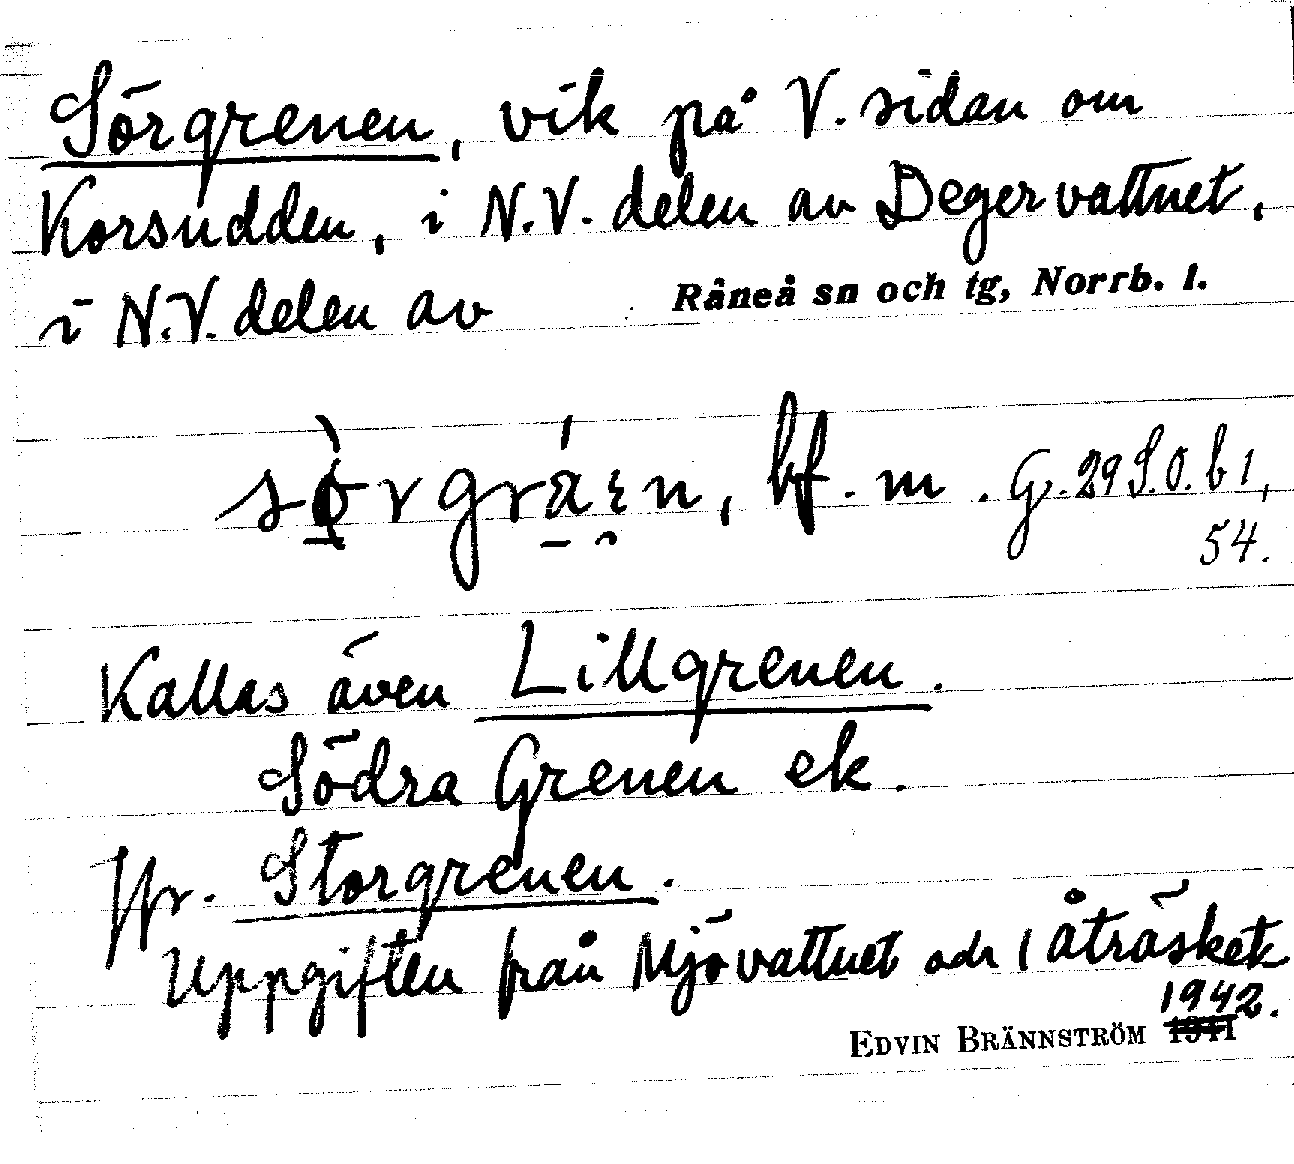 Sörgrenen, vik på V. sidan om
Korsudden, i N.V. delen av Degervattnet,
i N.V. delen av Råneå sn och tg, Norrb. l.
bf. m. G. 29 S.O. b 1,
54.
Kallas även Lillgrenen.
Södra Grenen ek.
Jfr. Storgrenen.
Uppgiften från Mjövattnet och Åträsket
1942.
EDVIN BRÄNNSTRÖM 1941